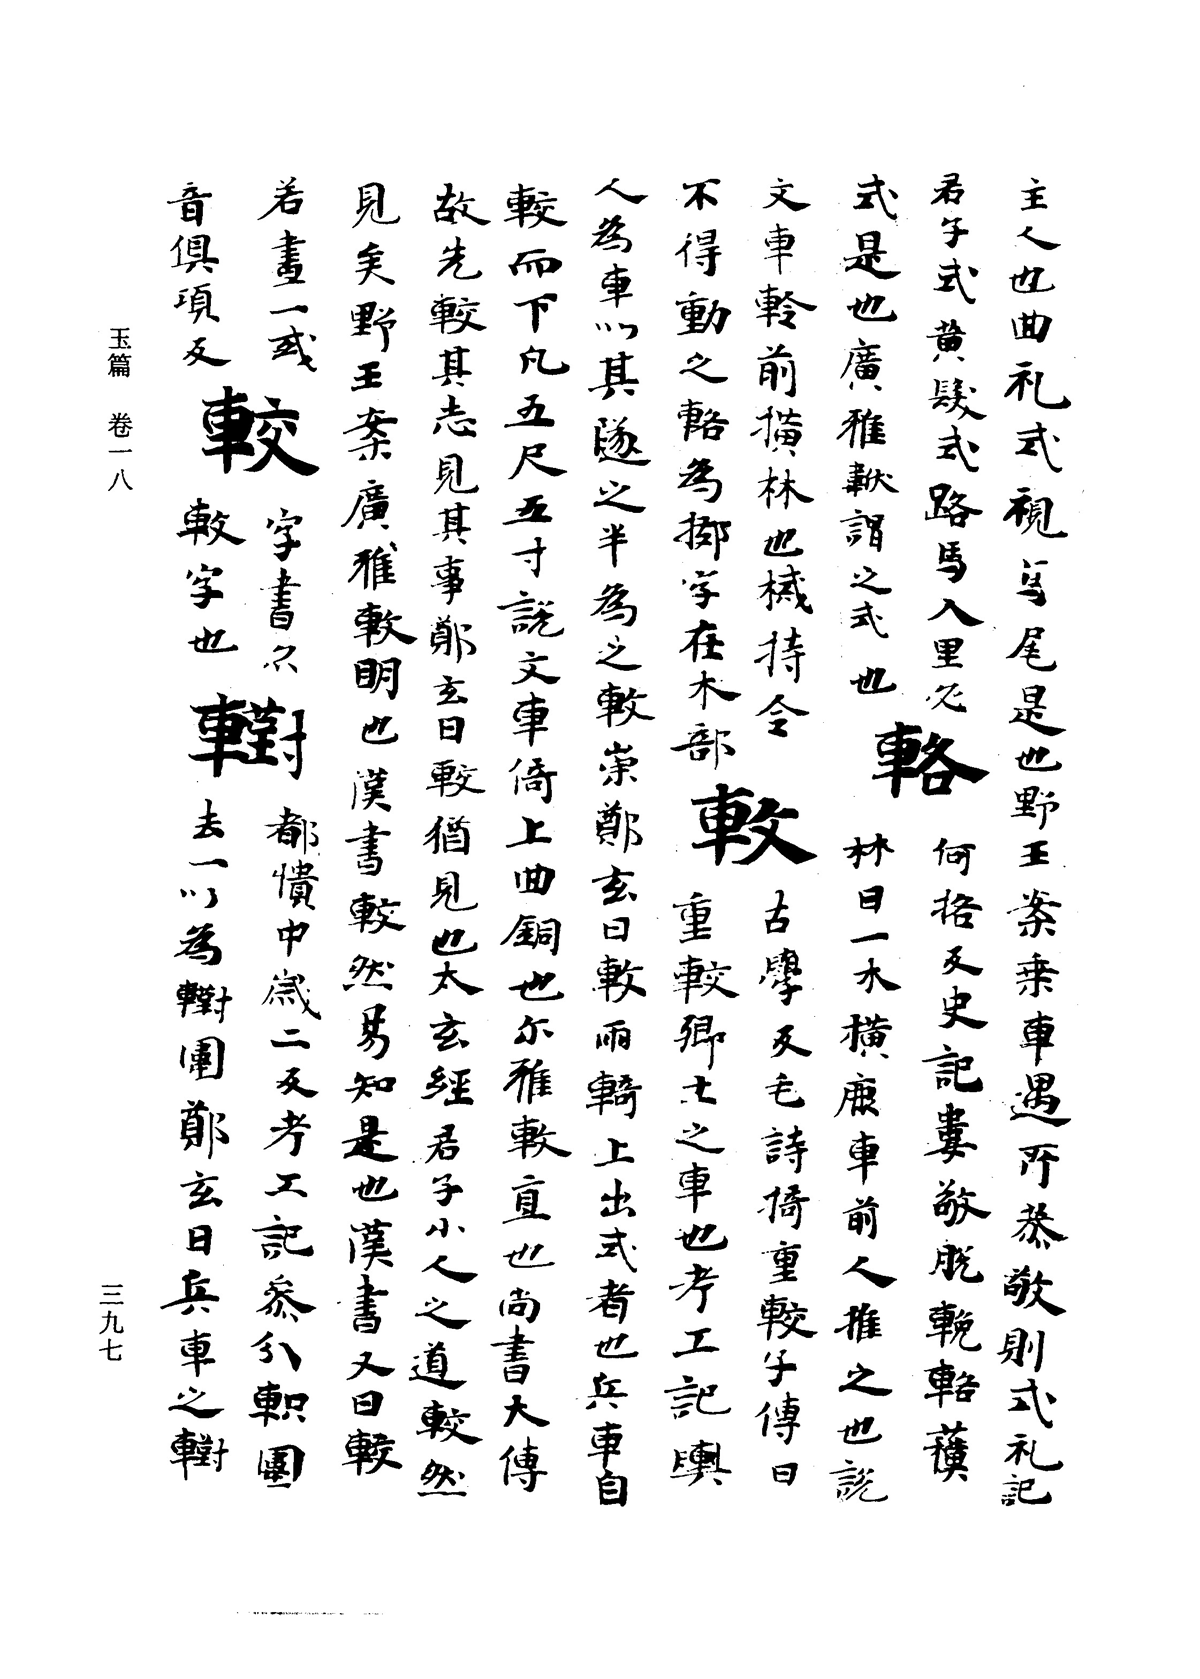 主人也曲礼式視馬尾是也野王案乗車遇所恭敬則式礼記
君子式黄髮式路馬入里必
式是也廣雅軾謂之式也
輅
何格反史記婁敬脱輓輅
林曰一木横鹿車前人推之也説
文車軨前横林也樴持令
不得動之輅為字在木部
䡈
古學反毛詩猗重較子傳曰
重較卿士之車也考工記輿
人為車以其隧之半為之䡈崇鄭玄曰䡈兩輢上出式者也兵車自
較而下凡五尺五寸說文車倚上曲銅也尓雅䡈直也尚書大傳
故先較其志見其事鄭玄曰較猶見也太玄經君子小人之道較然
見矣野王案廣雅䡈明也漢書較然易知是也漢書又曰較
若畫一或
音倶項反
較
字書尓
䡈字也
轛
都憒中歳二反考工記叅分軹圍
去一以為轛圍鄭玄曰兵車之轛
玉篇 卷一八
三九七